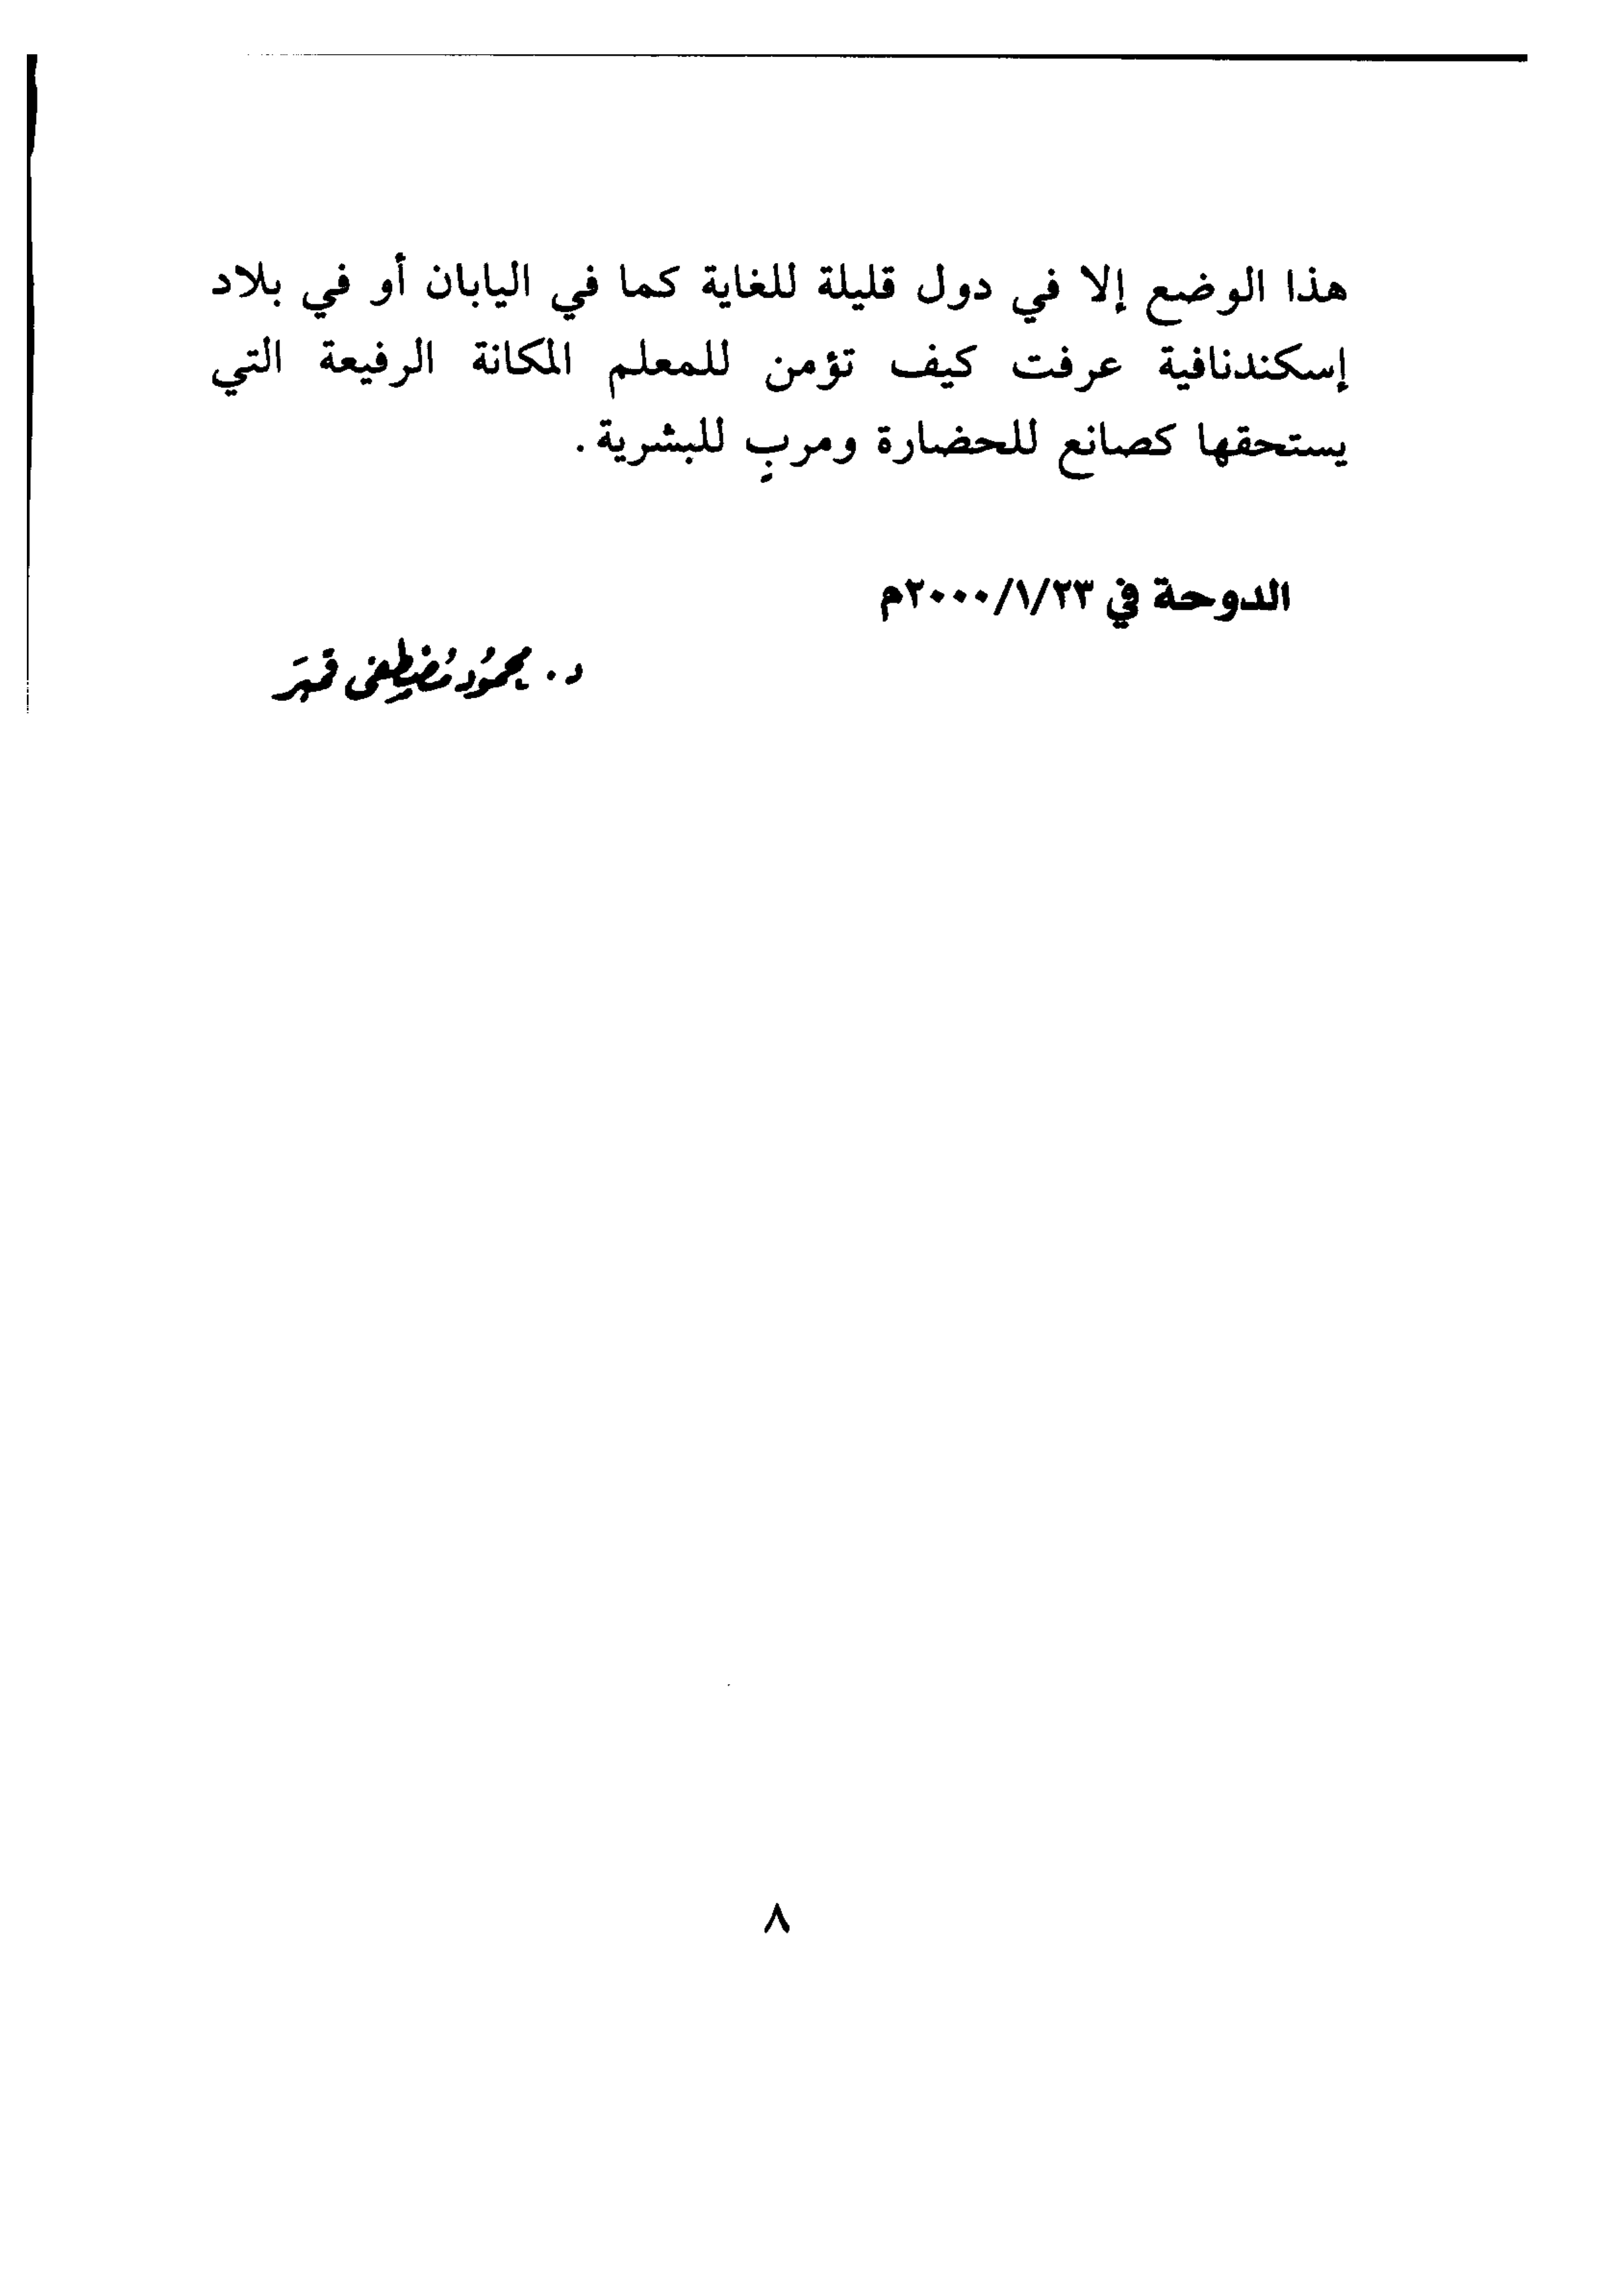 هذا الوضع إلا في دول قليلة للغاية كما في اليابان أو في بلاد
إسكندنافية عرفت كيف تؤمن للمعلم المكانة الرفيعة التي
يستحقها كصانع للحضارة ومربٍ للبشرية .
الدوحة في ٢٠٠٠/١/٢٣م
د . محمود مصطفى قمبر
٨